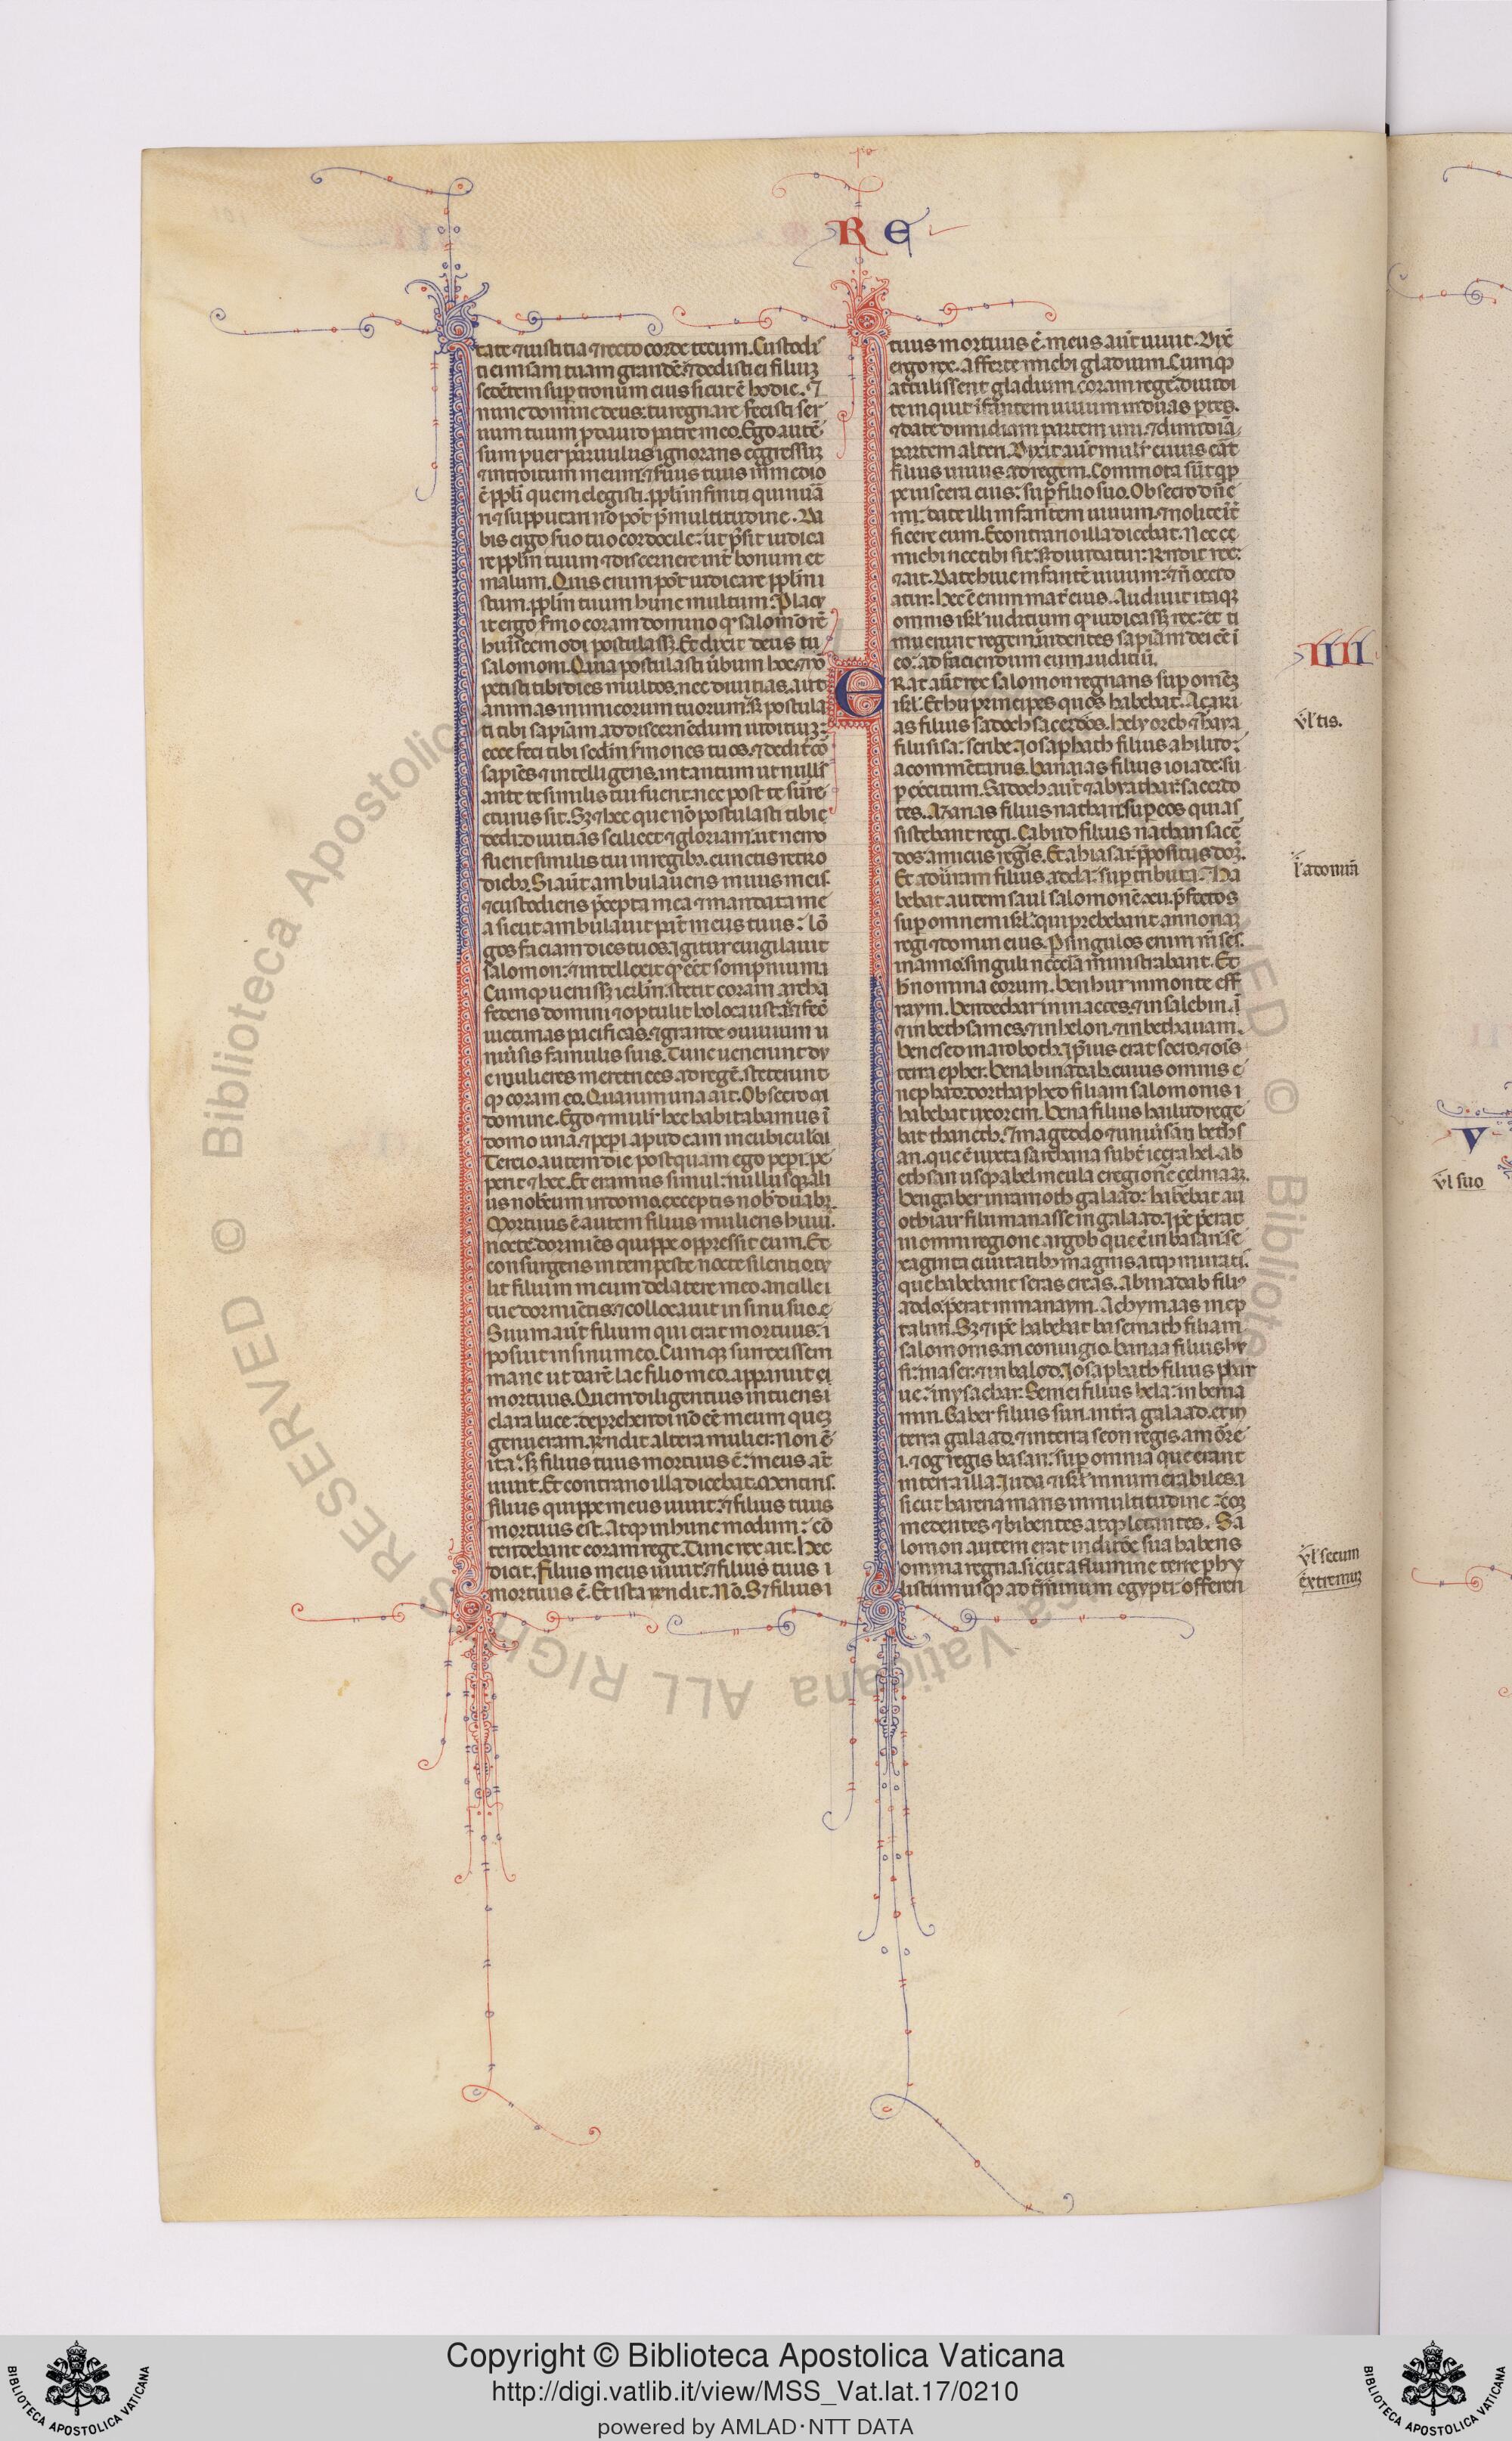 R E
tate ⁊ iustitia ⁊ recto corde tecum. Custodi
ti ei m̃iam tuam grandẽ: ⁊ dedisti ei filiuꝫ
sedẽtem suꝑ tronum eius sicut ẽ hodie. ⁊
nunc domine deus: tu regnare fecisti ser
uum tuum ꝓ dauid patre meo. Ego autẽ
sum puer paruulus ignorans egressuꝫ
⁊ introitum meum: ⁊ suus tuus in medio
ẽ ppłi quem elegisti. ppłi infiniti qui nũa
ri ⁊ supputari nõ pot p̃ multitudine. Da
bis ergo suo tuo cor docile: ut p̃sit iudica
re ppłm tuum ⁊ discernere int̃ bonum et
malum. Quis enim pot̃ iudicare ppłm i
stum. ppłm tuum hunc multum: Placu
it ergo s̃mo coram domino ꝙ salomon rẽ
huiscemodi postulassꝫ. Et dixit deus
salomoni. Quia postulasti ũbum hoc. ⁊ nõ
petisti tibi dies multos. nec diuitias. aut
animas inimicorum tuorum: sꝫ postulas
ti tibi sapiãm ad discernẽdum iuditiuꝫ:
ecce feci tibi scdm s̃mones tuos. ⁊ dedi t̃ cõ
sapiẽs ⁊ intelligens. in tantum ut nullꝰ
ante te similis tui fuerit. nec post te sũre
cturus sit. Sꝫ ⁊ hec que nõ postulasti tibi
dedi. diuitias scilicet ⁊ gloriam: ut nemo
fuerit similis tui in regibꝫ. cunctis retro
diebꝫ. Si aũt ambulaueris in uiis meis.
⁊ custodiens p̃cepta mea ⁊ mandata me
a sicut ambulauit pat̃ meus tuus: lõ
gos faciam dies tuos. Igitur euigilauit
salomon: ⁊ intellexit ꝙ eẽt sompnium
Cumꝙ uenissꝫ ierłm. stetit coram archa
federis domini ⁊ optulit holocausta: ⁊ fec̃
uictimas pacificas. ⁊ grande uiuium u
niũsis famulis suis. Tunc uenerunt du
e mulieres meretrices. ad regẽ. steterunt
ꝙ coram eo. Quarum una ait. Obsecro mi
domine. Ego ⁊ mulier hec habitabamus ĩ
domo una. ⁊ peperi apud eam in cubiculo
Tercio autem die postquam ego peperi. pe
perit ⁊ hec. Et eramus simul: nullusꝙ ali
us nobcum in domo. exceptis nobꝫ duabꝫ.
Mortuus ẽ autem filius mulieris huiꝰ.
nocte. dormiẽs quippe oppressit eum. Et
consurgens intempeste nocte silentio. tu
lit filium meum de latere meo ancille
tue dormiẽtis. ⁊ collocauit in sinu suo.
Suum aũt filium qui erat mortuus:
posuit in sinu meo. Cumꝙ surrexissem
mane ut darẽ lac filio meo. apparuit
mortuus. Quem diligentius intuens
clara luce: deprehendi nõ eẽ meum queꝫ
genueram. Rñdit altera mulier. Non ẽ
ita. sꝫ filius tuus mortuus ẽ: meus aũt
uiuit. Et contrario illa dicebat. Mentiris.
filius quippe meus uiuit: ⁊ filius tuus
mortuus est. Atꝙ in hunc modum: cõ
tendebant coram rege. Tunc rex ait. Hec
dicit. Filius meus uiuit: ⁊ filius tuus
mortuus ẽ. Et ista rñdit. Nõ. Sꝫ filius
tuus mortuus ẽ. meus aũt uiuit. Dix̃
ergo rex. Afferte michi gladium. Cumꝙ
attulissent gladium coram rege: diuidi
te inquit ĩfantem uiuum in duas ptes.
⁊ date dimidiam partem uni. ⁊ dimidiã
partem alteri. Dixit aũt mulier cuius eãt
filius uiuus. ad regem. Commota sũt qp
pe uiscera eius: suꝑ filio suo. Obsecro dñe
mi: date illi infantem uiuum. ⁊ nolite ĩt
ficere eum. Econtrario illa dicebat. Nec
michi nec tibi sit. sꝫ diuidatur: Rñdit rex:
⁊ ait. Date huic infantẽ uiuum: ⁊ nõ occid
atur: hec ẽ enim mat̃ eius. Audiuit itaqꝫ
omnis isrł iuditium ꝙ iudicassꝫ rex: et ti
muerunt regem: uidentes sapiãm dei eẽ ĩ
eo: ad faciendum eum iuditiũ.
IIII
ERat aũt rex salomon regnans suꝑ omẽꝫ
isrł. Et hii principes quos habebat. Açari
as filius sadoch sacerdos. helyoreb ⁊ haya
filii sisa: scribe. Josaphath filius ahilud:
a commẽtariis. banaias filius ioiade: su
ꝑ ex̃citum. Sadoch aũt ⁊ abyathar: sacerdo
tes. Azarias filius nathan: suꝑ eos qui as
sistebant regi. Cabud filius nathan sacẽ
dos: amicus regis. Et ahiasar: p̃positus domꝰ.
Et adoniram filius abda: suꝑ tributa. Ha
bebat autem saul salomonẽ xii. p̃fectos
suꝑ omnem isrł. qui prebebant annonaꝫ
regi ⁊ domui eius. P singulos enim mẽses
in anno. singuli necc̃ia ministrabant. Et
h̃ nomina eorum. benhur in monte eff
raym. bendechar in macces. ⁊ in salebim.
⁊ in bethsames. ⁊ in helon. ⁊ in bethanam.
benesed in aroboth. Ipius erat socco. ⁊ oĩs
terra epher. benabinadab. cuius omnis
nephad dor. thaphed filiam salomonis
habebat uxorem. bena filius hailud rege
bat thanech. ⁊ mageddo ⁊ uniũsam beths
an. que ẽ iuxta sarthana subt̃ iezrahel. ab
ethsan usꝙ abelmeula e regione celmaaꝫ.
bengaber in ramoth galaad: habebat au
othiair filii manasse in galaad. Ipẽ p̃erat
in omni regione argob que ẽ in basan. se
xaginta ciuitatibꝫ magnis atꝙ muratis.
que habebant seras ereas. Abinadab filiꝰ
addo. p̃erat in manaym. Achymaas in nep
talim. Sꝫ ⁊ ipẽ habebat basemath filiam
salomonis in coniugio. banaa filius hu
si: in aser. ⁊ in balod. Josaphath filius phar
ue: in ysachar. Semei filius hela: in benia
min. Gaber filius suri. in t̃ra galaad. et in
terra galaad. ⁊ in terra seon regis amorre
i. ⁊ og regis basan: suꝑ omnia que erant
in terra illa. Juda ⁊ isrł innumerabiles.
sicut harena maris in multitudine: eoꝫ
medentes ⁊ bibentes atꝙ letantes. Sa
lomon autem erat in ditiõe sua habens
omnia regna. sicut a flumine terre phy
listiim usꝙ ad t̃minum egypti: offeren
ũl tis.
ũl secum
extremuꝫ
V
ũl suo
Copyright © Biblioteca Apostolica Vaticana
http://digi.vatlib.it/view/MSS_Vat.lat.17/0210
powered by AMLAD·NTT DATA
BIBLIOTECA APOSTOLICA VATICANA
BIBLIOTECA APOSTOLICA VATICANA